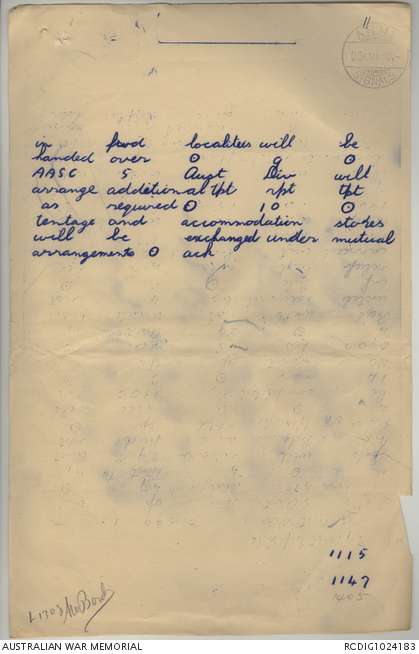 11
SIGNALS
in fwd localities will be
handed over ⊙ 9 ⊙
AASC 5 Aust Div will
arrange additional tpt rpt tpt
as required ⊙ 10 ⊙
tentage and accommodation stores
will be exchanged under mutual
arrangements ⊙ ack
1115
1147
1405
L1303
AUSTRALIAN WAR MEMORIAL
RCDIG1024183